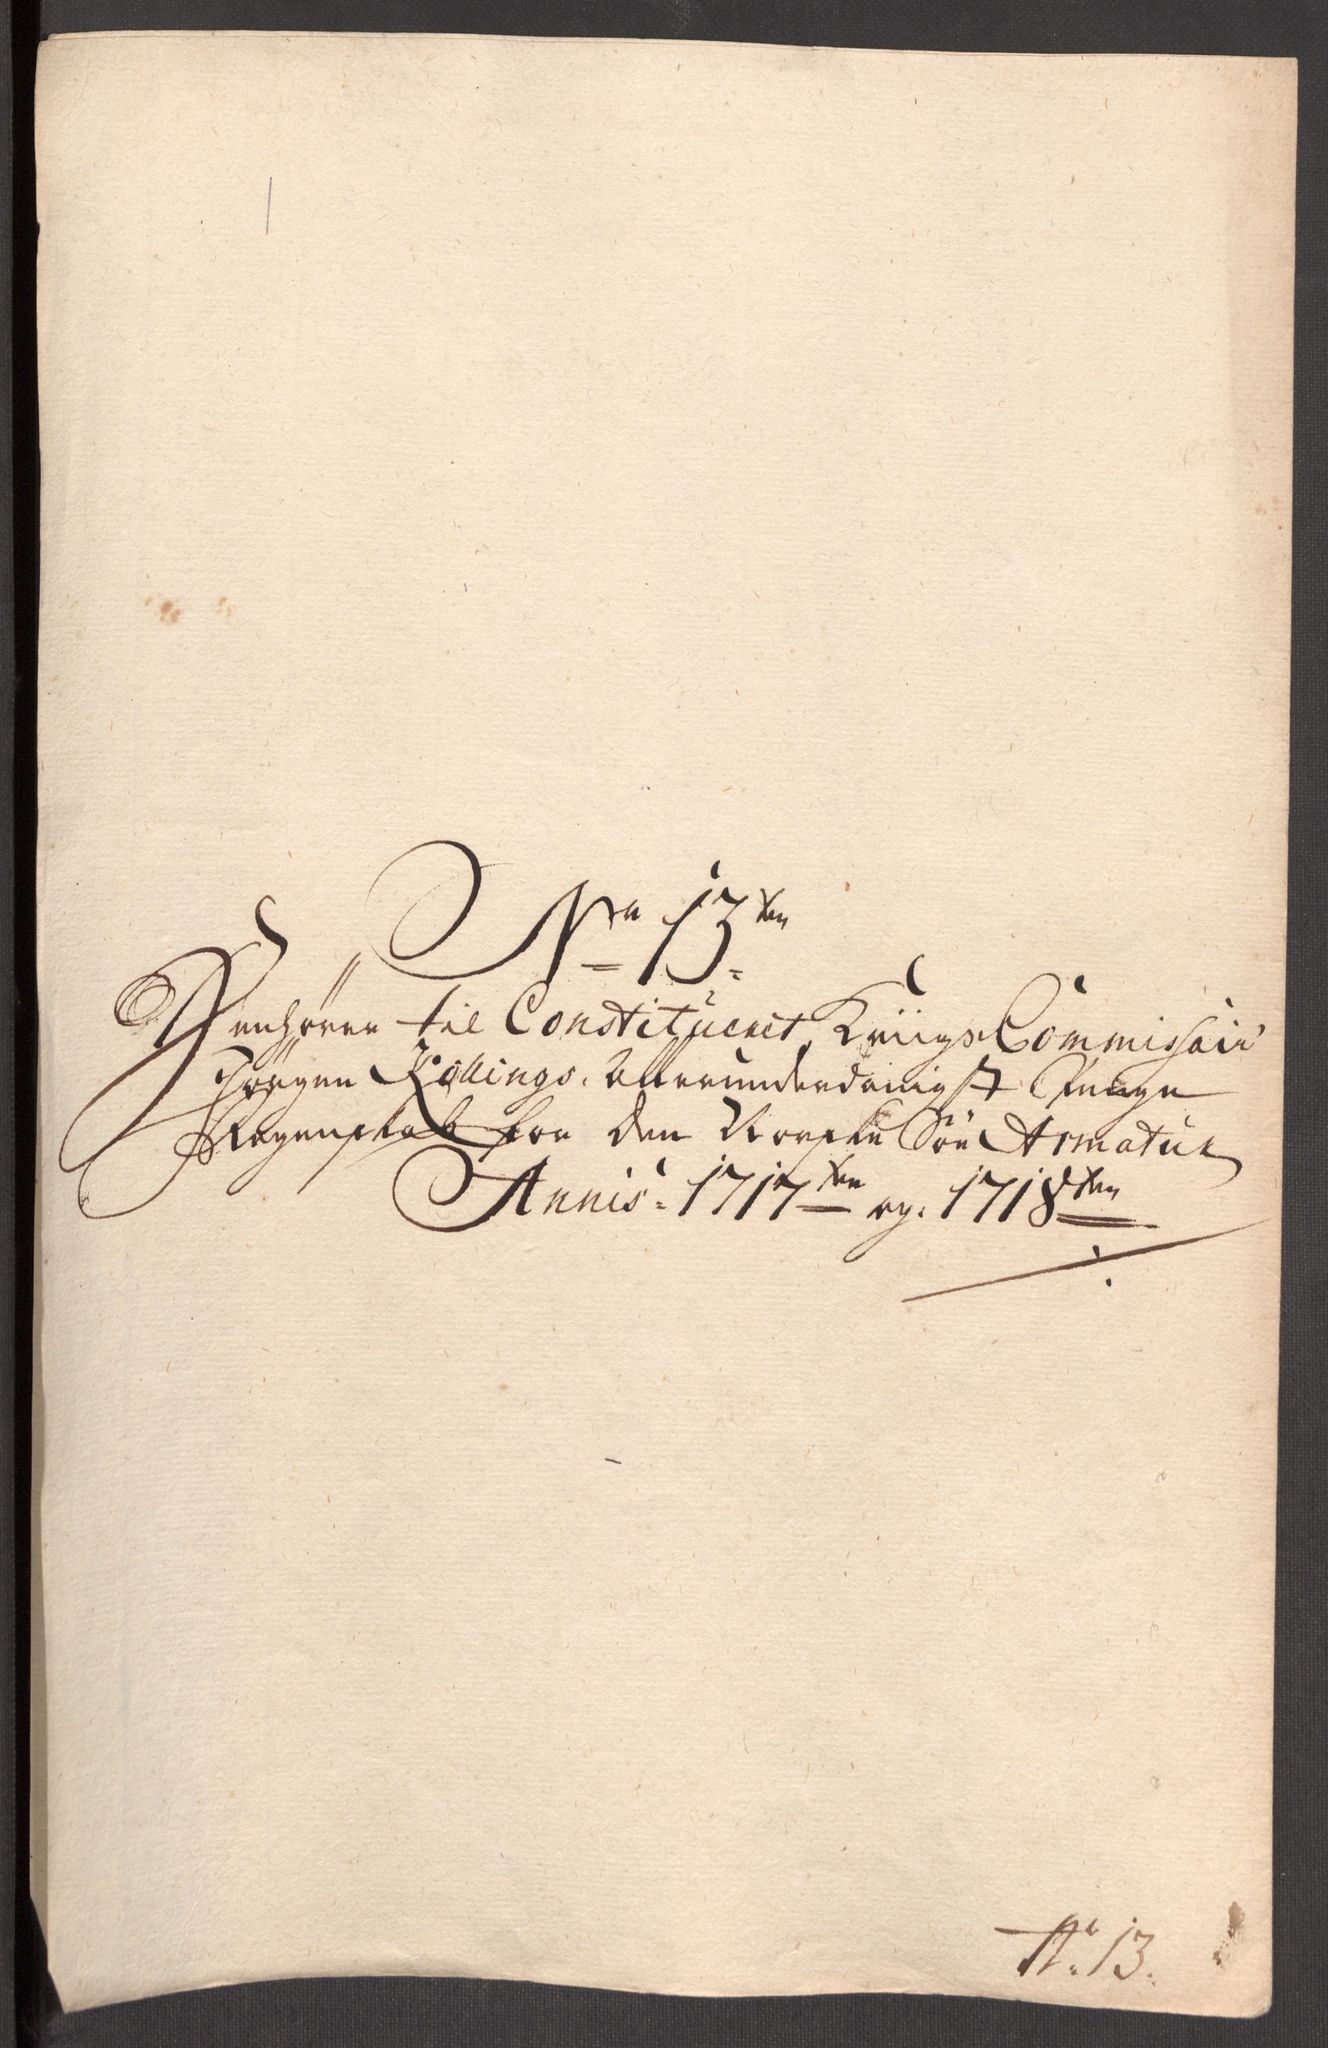 No 13ten
Henhörer til Constitueret Kriigs Commissair
Jörgen Kollings. Allerunderdanigst Penge
Regenskab for den Norske Söe Armatur
Annis. 1717ten og. 1718ten
No. 13.